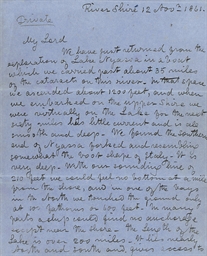 River Shire 12 Novr 1861.
Private
My Lord
We have just returned from the
exploration of Lake Nyassa in a boat
which we carried past about 35 miles
of the cataracts on this river. In that space
we ascended about 1200 feet, and when
we embarked on the upper Shire we
were virtually on the Lake for the next
sixty miles, so little current and is all
smooth and deep. We found the Southern
end of Nyassa forked and resembling
somewhat the boot shape of Italy. It is
very deep. With our sounding line of
210 feet we could feel no bottom at a mile
from the shore, and in one of the bays
in the North we touched the ground only
at 100 fathoms or 600 feet. In many
parts a ship could find no anchorage
except near the shore. The length of the
Lake is over 200 miles. It lies nearly
North and South and gives access to